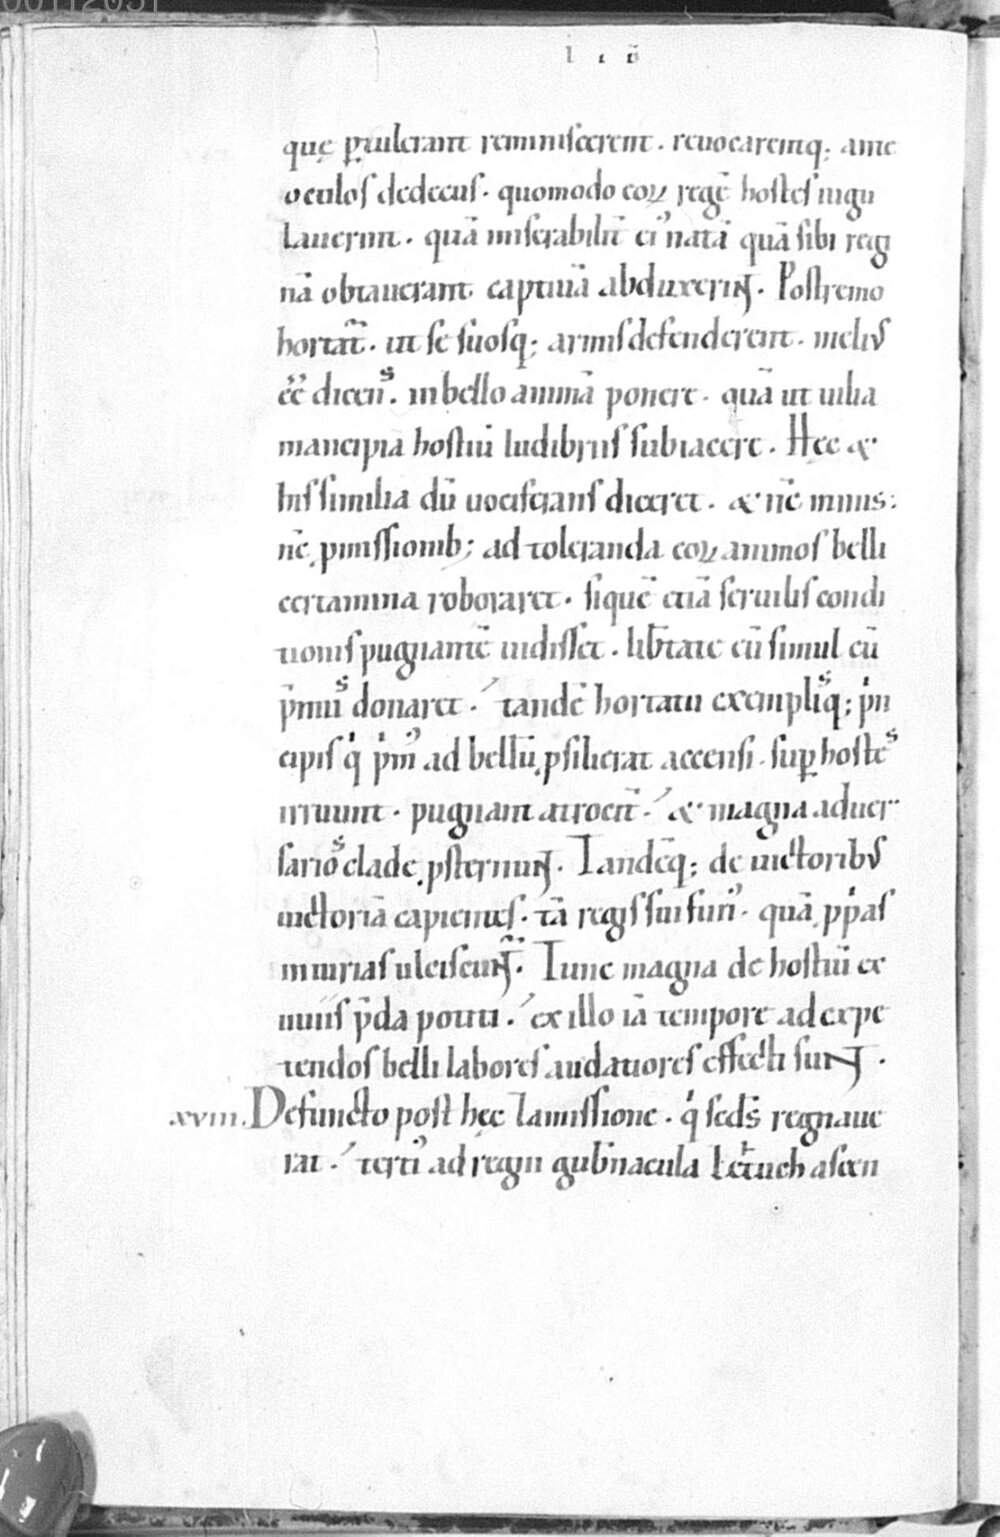 00112051
lıb
quę ꝑtulerant reminiscerent. reuocarentq; ante
oculos dedecus. quomodo eoꝝ regē hostes iugu
lauerint. quā miserabilit̄ ei᾿ natā quā sibi regi
nā obtauerant captiuā abduxerint. Postremo
hortat᷑. ut se suosq; armis defenderent. meliꝰ
ēē dicens. in bello animā ponere. quā ut uilia
mancipia hostiū ludibriis subiacere. Hęc &
his similia dū uociferans diceret. & nc̄ minis:
nc̄ ꝓmissionib; ad toleranda eoꝝ animos belli
certamina roboraret. siquē etiā seruilis condi
tionis pugnantē uidisset. lib̄tate eū simul cū
p̄miis donaret. tandē hortatu exemplisq; pⁱn
cipis qⁱ pⁱm᾿ ad bellū ꝓsilierat accensi. suꝑ hostes
irruunt. pugnant atrocit̄. & magna aduer
sarios clade ꝓsternunt. Tandēq; de uictoribꝰ
uictoriā capientes. tā regis sui fun᾿. quā ꝓpⁱas
iniurias ulciscunt᷑. Tunc magna de hostiū ex
uuiis p̄da potiti. ex illo iā tempore ad expe
tendos belli labores audatiores effecti sunt.
xviii. Defuncto post hęc Lamissione. qⁱ sedˢ regnaue
rat. terti᾿ ad regni gub̄nacula Lethuch ascen